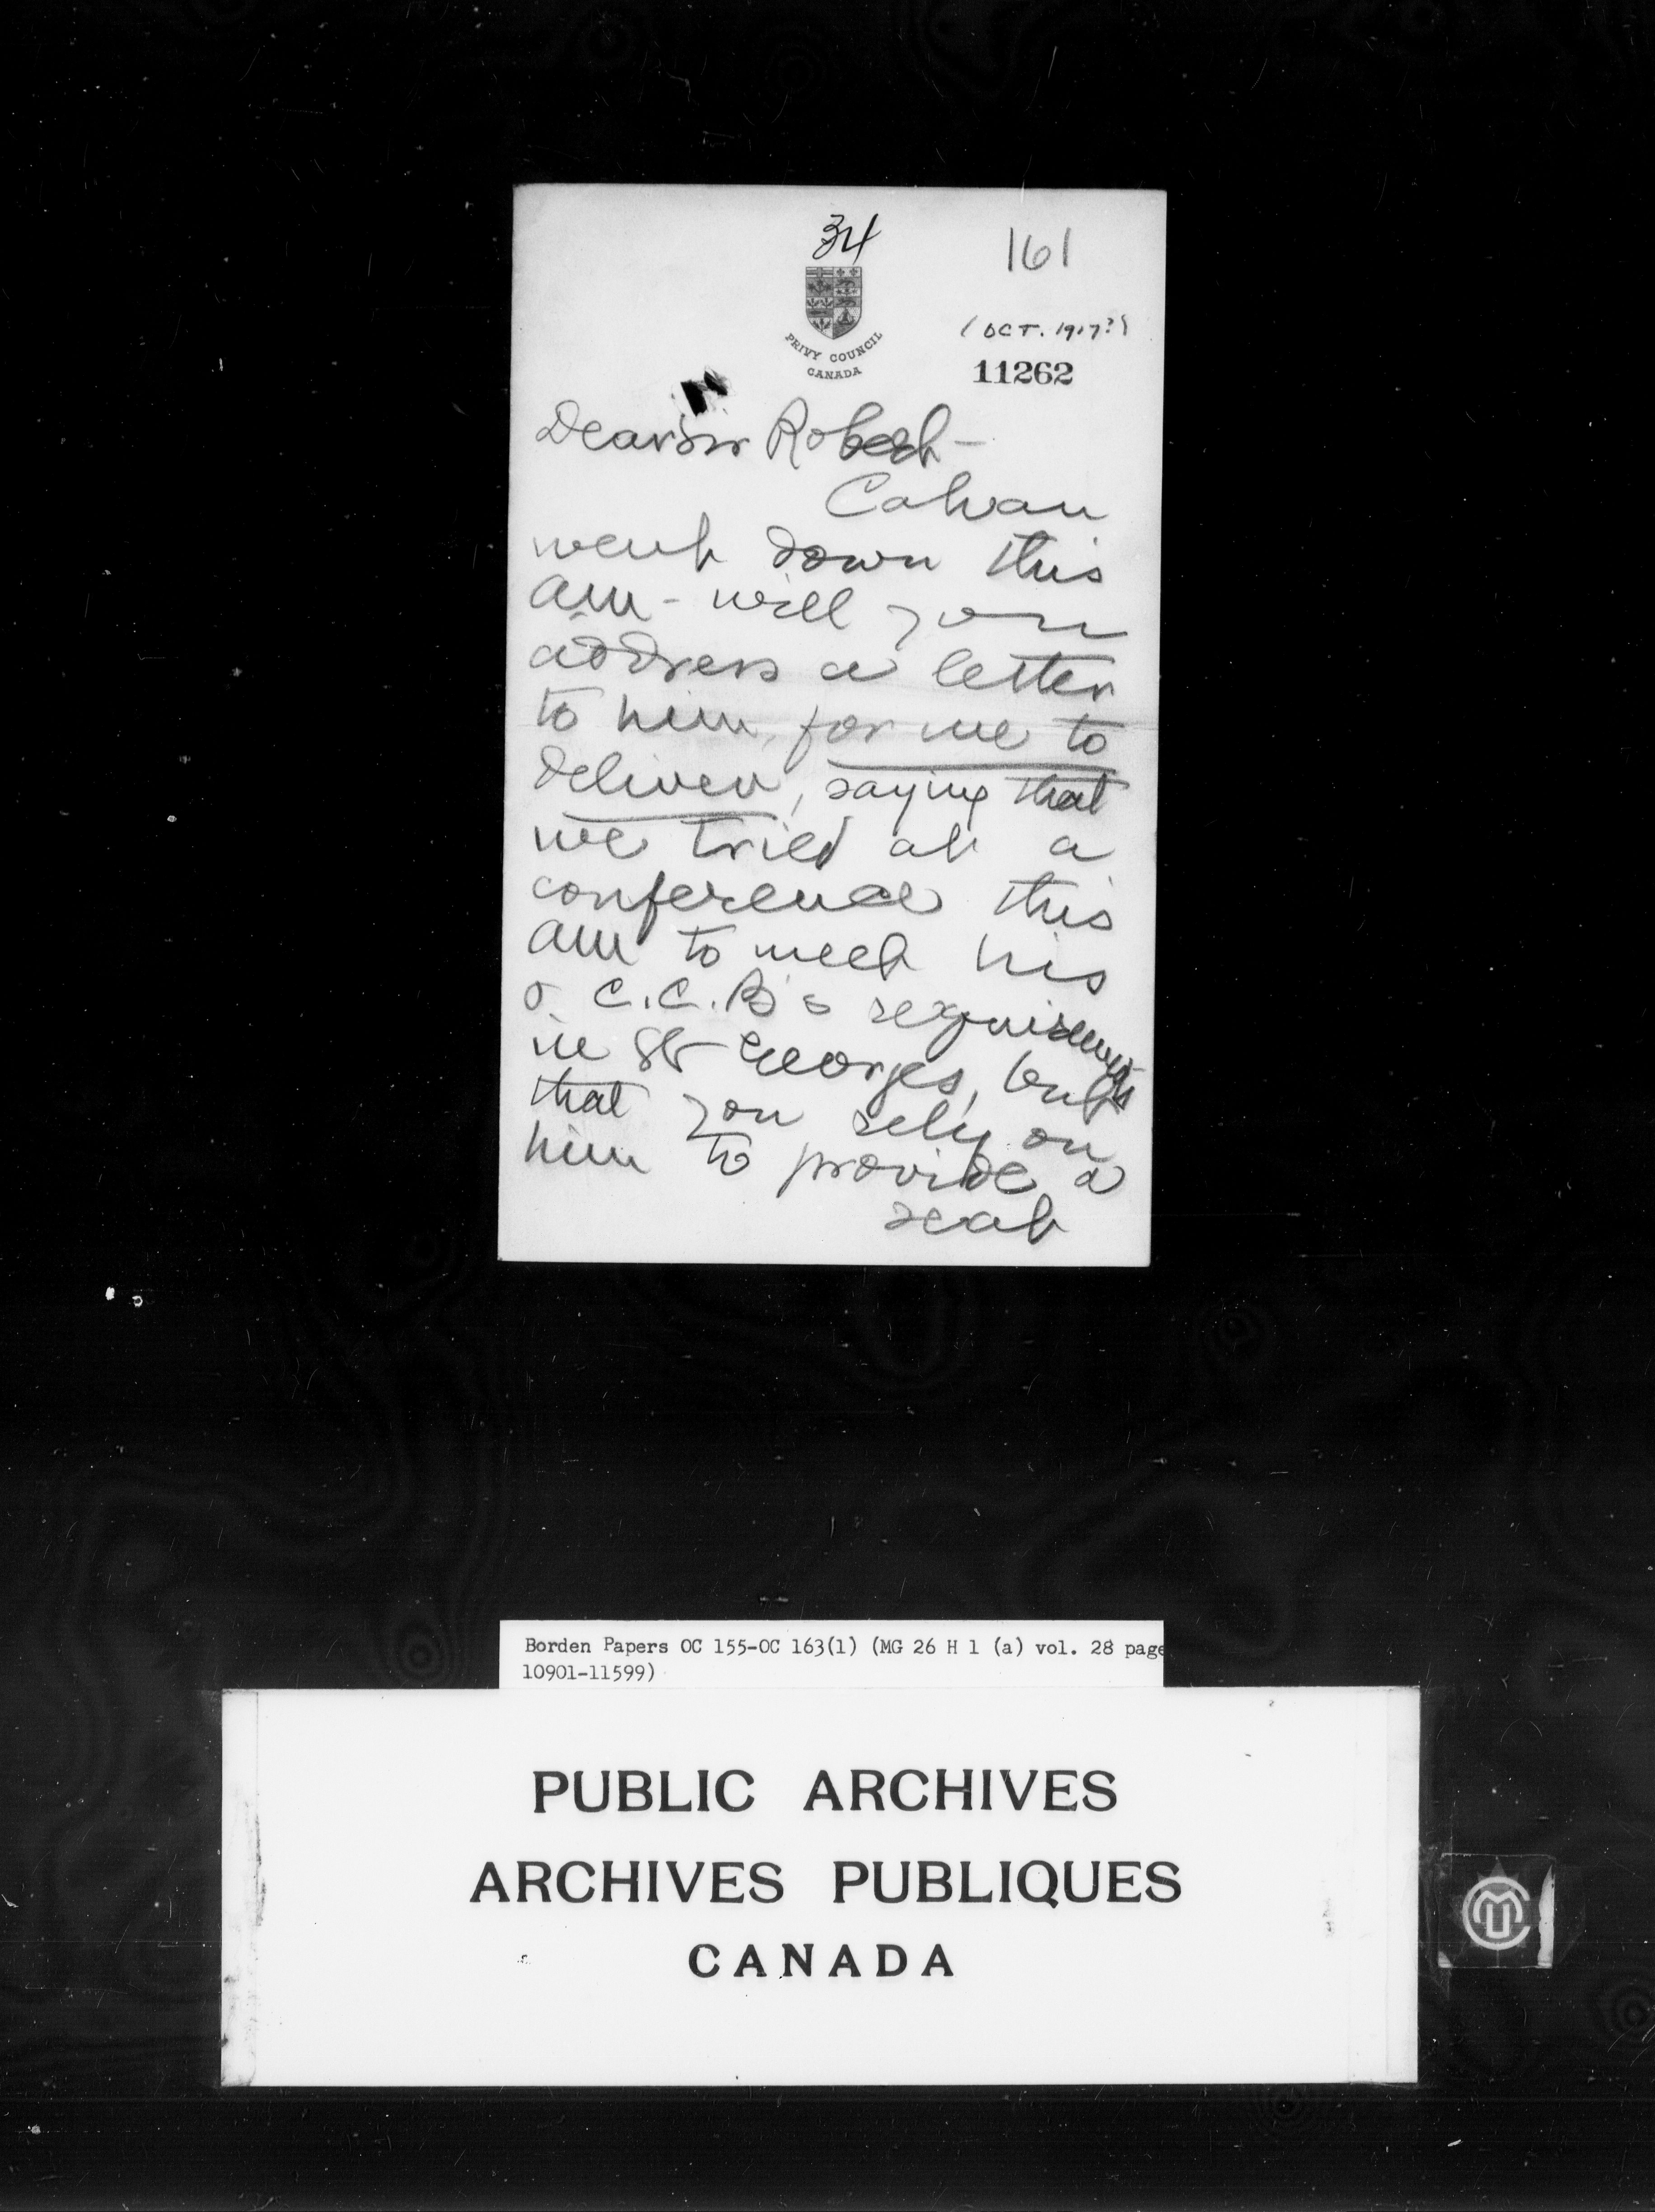 34
161
PRIVY COUNCIL
CANADA
(OCT. 1917?)
11262
Dear Sir Robert -
Cahan
went down this
am - will you
address a letter
to him, for me to
deliver, saying that
we tried at a
conference this
am to meet his
& C.C.B's requirements
in St Georges, but
that you rely on
him to provide a
seat
Borden Papers OC 155-OC 163(1) (MG 26 H 1 (a) vol. 28 page
10901-11599)
PUBLIC ARCHIVES
ARCHIVES PUBLIQUES
CANADA